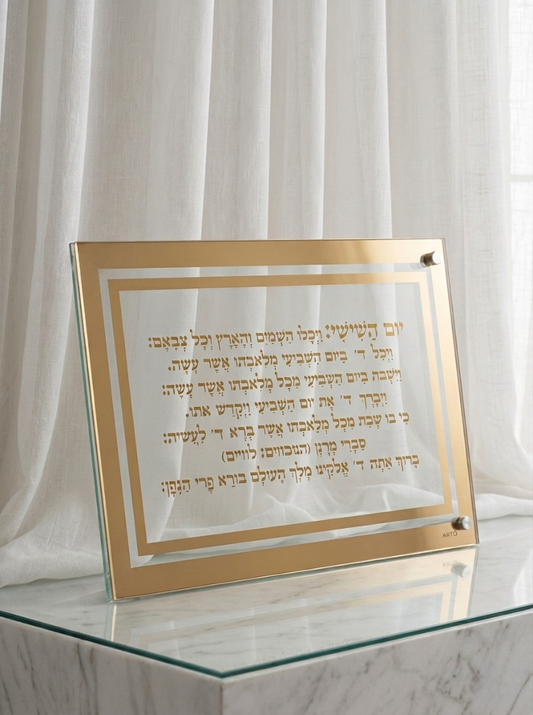 יוֹם הַשִּׁישִׁי: וַיְכֻלּוּ הַשָּׁמַיִם וְהָאָרֶץ וְכָל צְבָאָם:
וַיְכַל ד' בַּיּוֹם הַשְּׁבִיעִי מְלַאכְתּוֹ אֲשֶׁר עָשָׂה.
וַיִּשְׁבֹּת בַּיּוֹם הַשְּׁבִיעִי מִכָּל מְלַאכְתּוֹ אֲשֶׁר עָשָׂה:
וַיְבָרֶךְ ד' אֶת יוֹם הַשְּׁבִיעִי וַיְקַדֵּשׁ אֹתוֹ.
כִּי בוֹ שָׁבַת מִכָּל מְלַאכְתּוֹ אֲשֶׁר בָּרָא ד' לַעֲשׂוֹת:
סַבְרִי מָרָנָן לוויים)
בָּרוּךְ אַתָּה ד' אֱלֹקֵינוּ מֶלֶךְ הָעוֹלָם בּוֹרֵא פְּרִי הַגָּפֶן:
ARTO